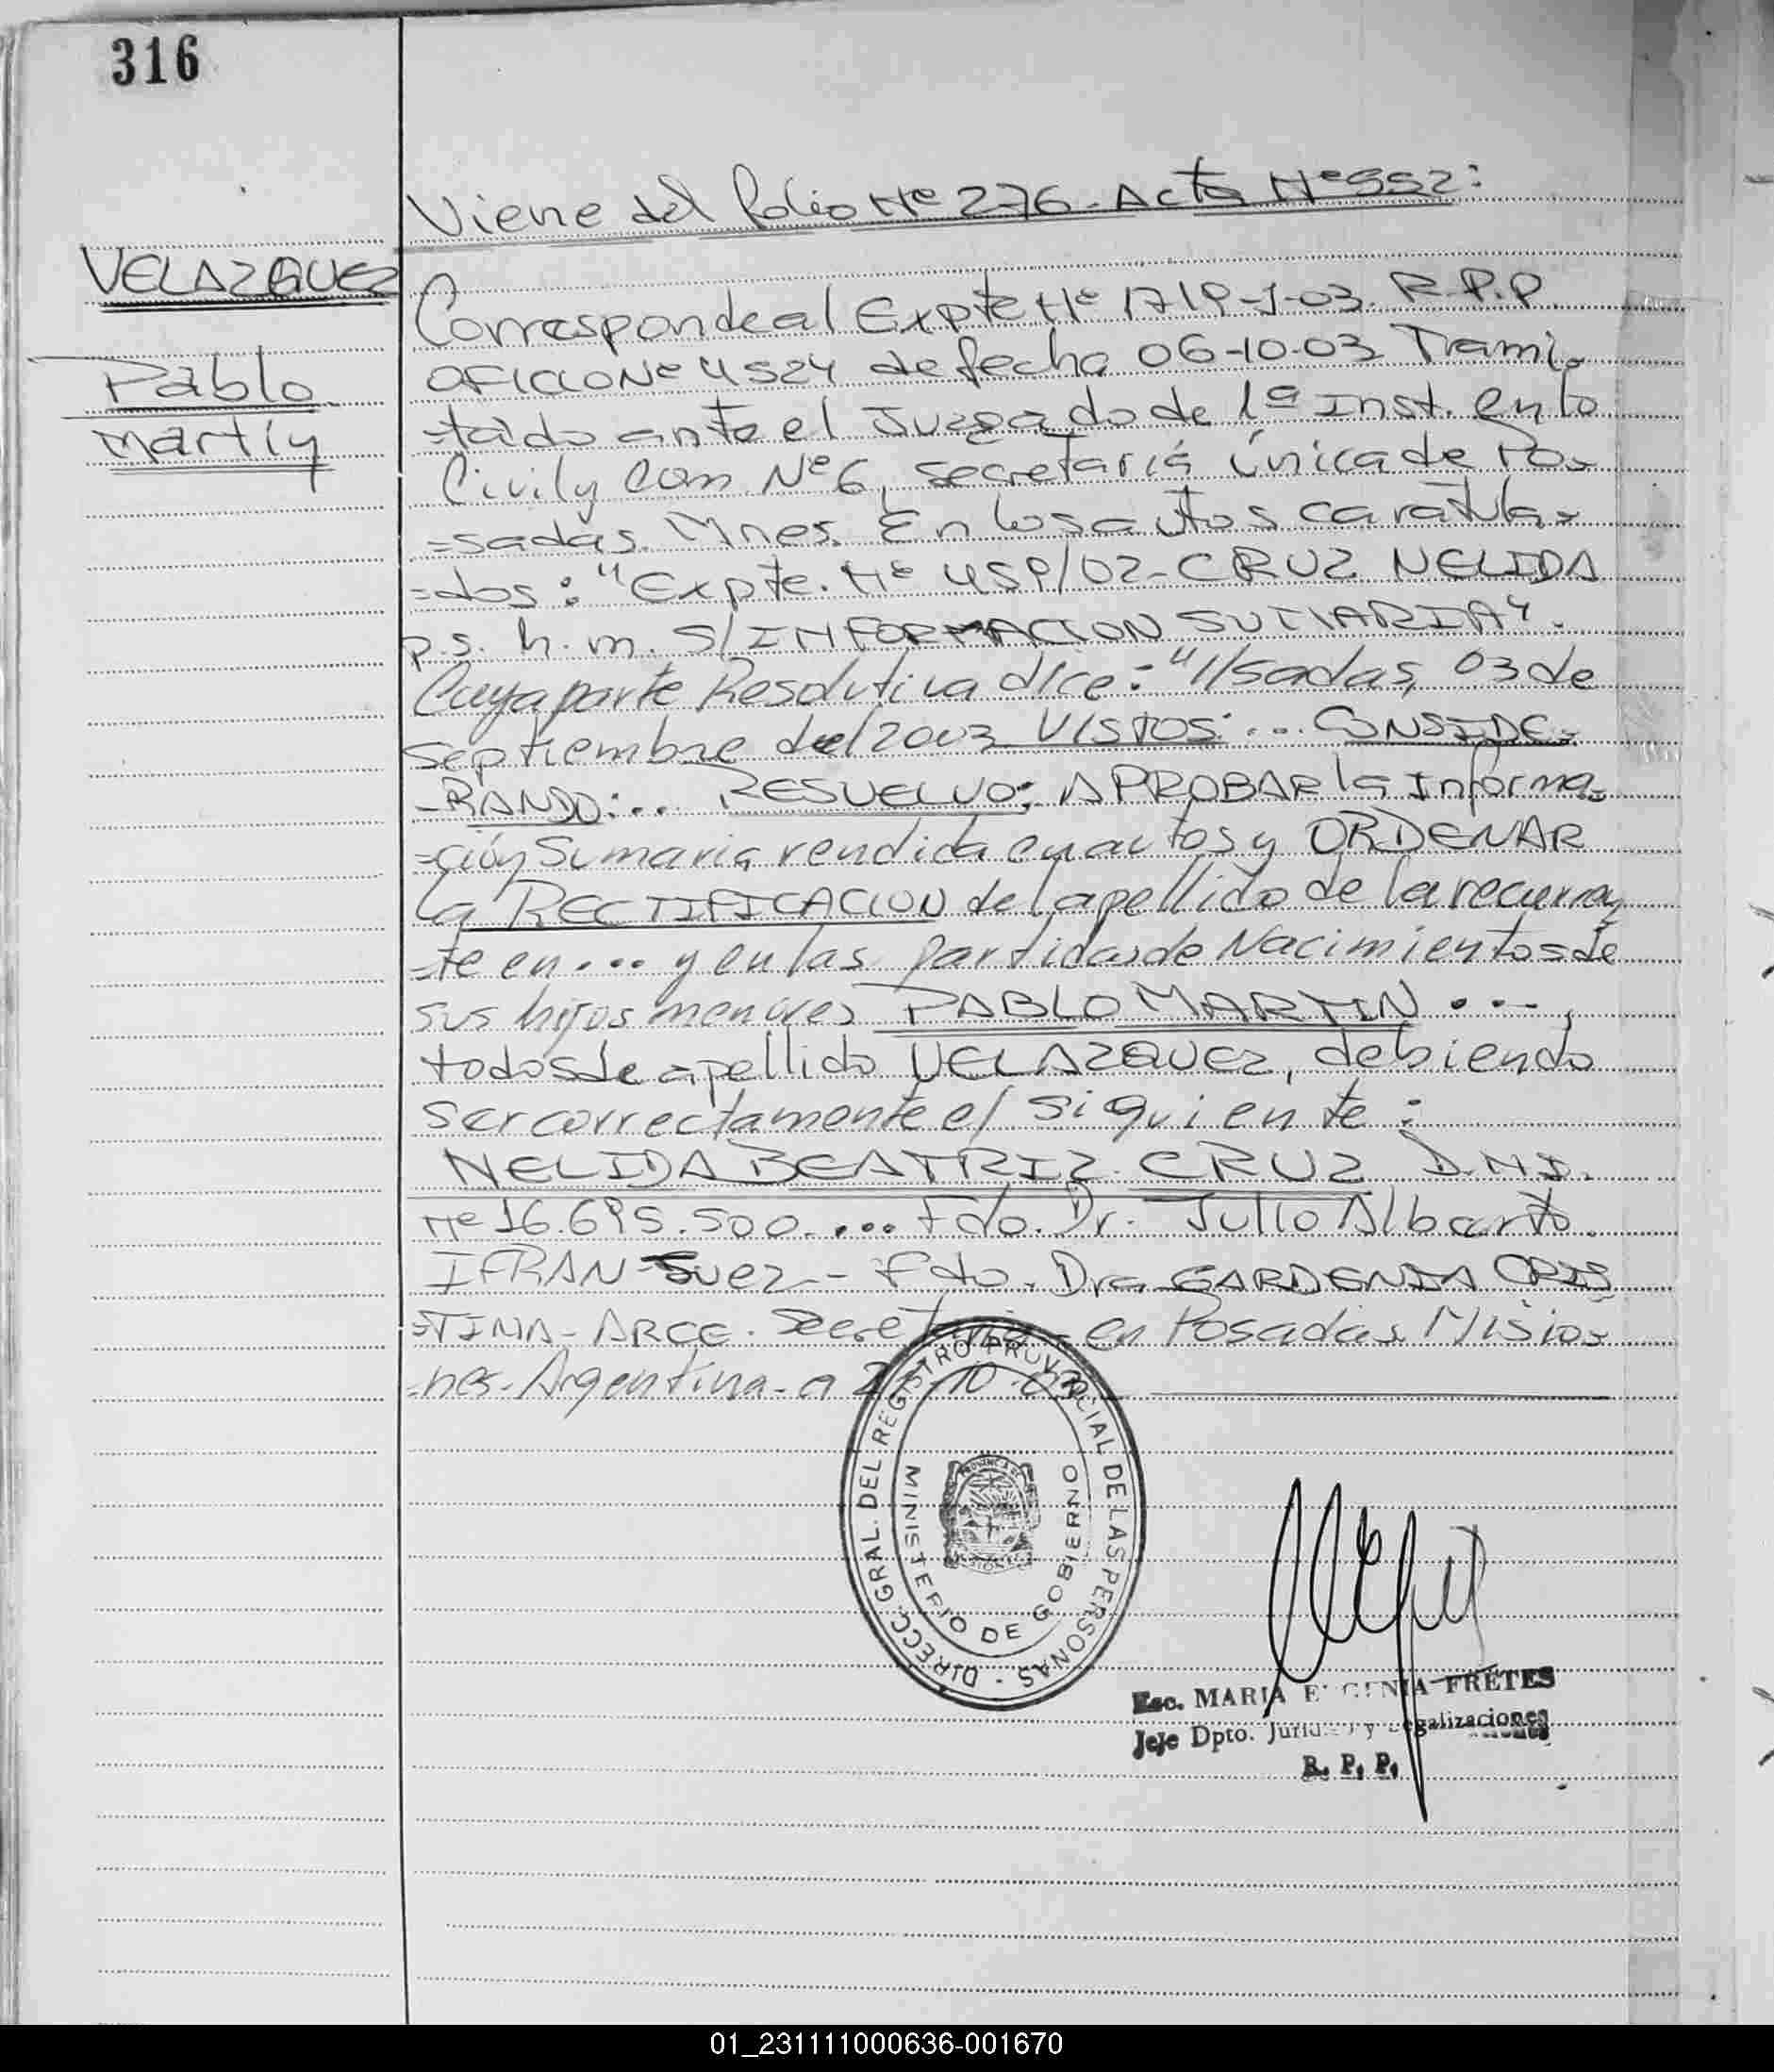 316
Viene del folio Nº 276. Acta Nº 552:
VELAZQUEZ
Pablo
Martín
Corresponde al Expte Nº 1719-J-03. R.P.P.
OFICIO Nº 4524 de fecha 06-10-03 Trami-
=tado ante el Juzgado de 1ª Inst. en lo
Civil y Com Nº 6, secretaría única de Po-
=sadas. Mnes. En los autos caratula-
=dos: "Expte. Nº 459/02-CRUZ NELIDA
p.s. h. m. S/INFORMACION SUMARIA".
Cuya parte Resolutiva dice: "//sadas, 03 de
septiembre del 2003 VISTOS:... CONSIDE-
-RANDO:... RESUELVO: APROBAR la Informa-
=ción Sumaria rendida en autos y ORDENAR
la RECTIFICACION del apellido de la recurren
=te en... y en las partidas de Nacimientos de
sus hijos menores PABLO MARTIN ...,
todos de apellido VELAZQUEZ, debiendo
ser correctamente el siguiente:
NELIDA BEATRIZ CRUZ D.N.I.
Nº 16.695.500.... Fdo. Dr. Julio Alberto
IFRAN Suez - Fdo. Dra GARDENIA CRIS
=TINA-ARCE. Secretaria - en Posadas Misio-
=nes-Argentina-a 10-03
DIRECC. GRAL. DEL REGISTRO PROVINCIAL DE LAS PERSONAS -
MINISTERIO DE GOBIERNO
PROVINCIA DE
MISIONES
Esc. MARIA EUGENIA FRETES
Jefe Dpto. Jurídico y Legalizaciones
R. P. P.
01_231111000636-001670